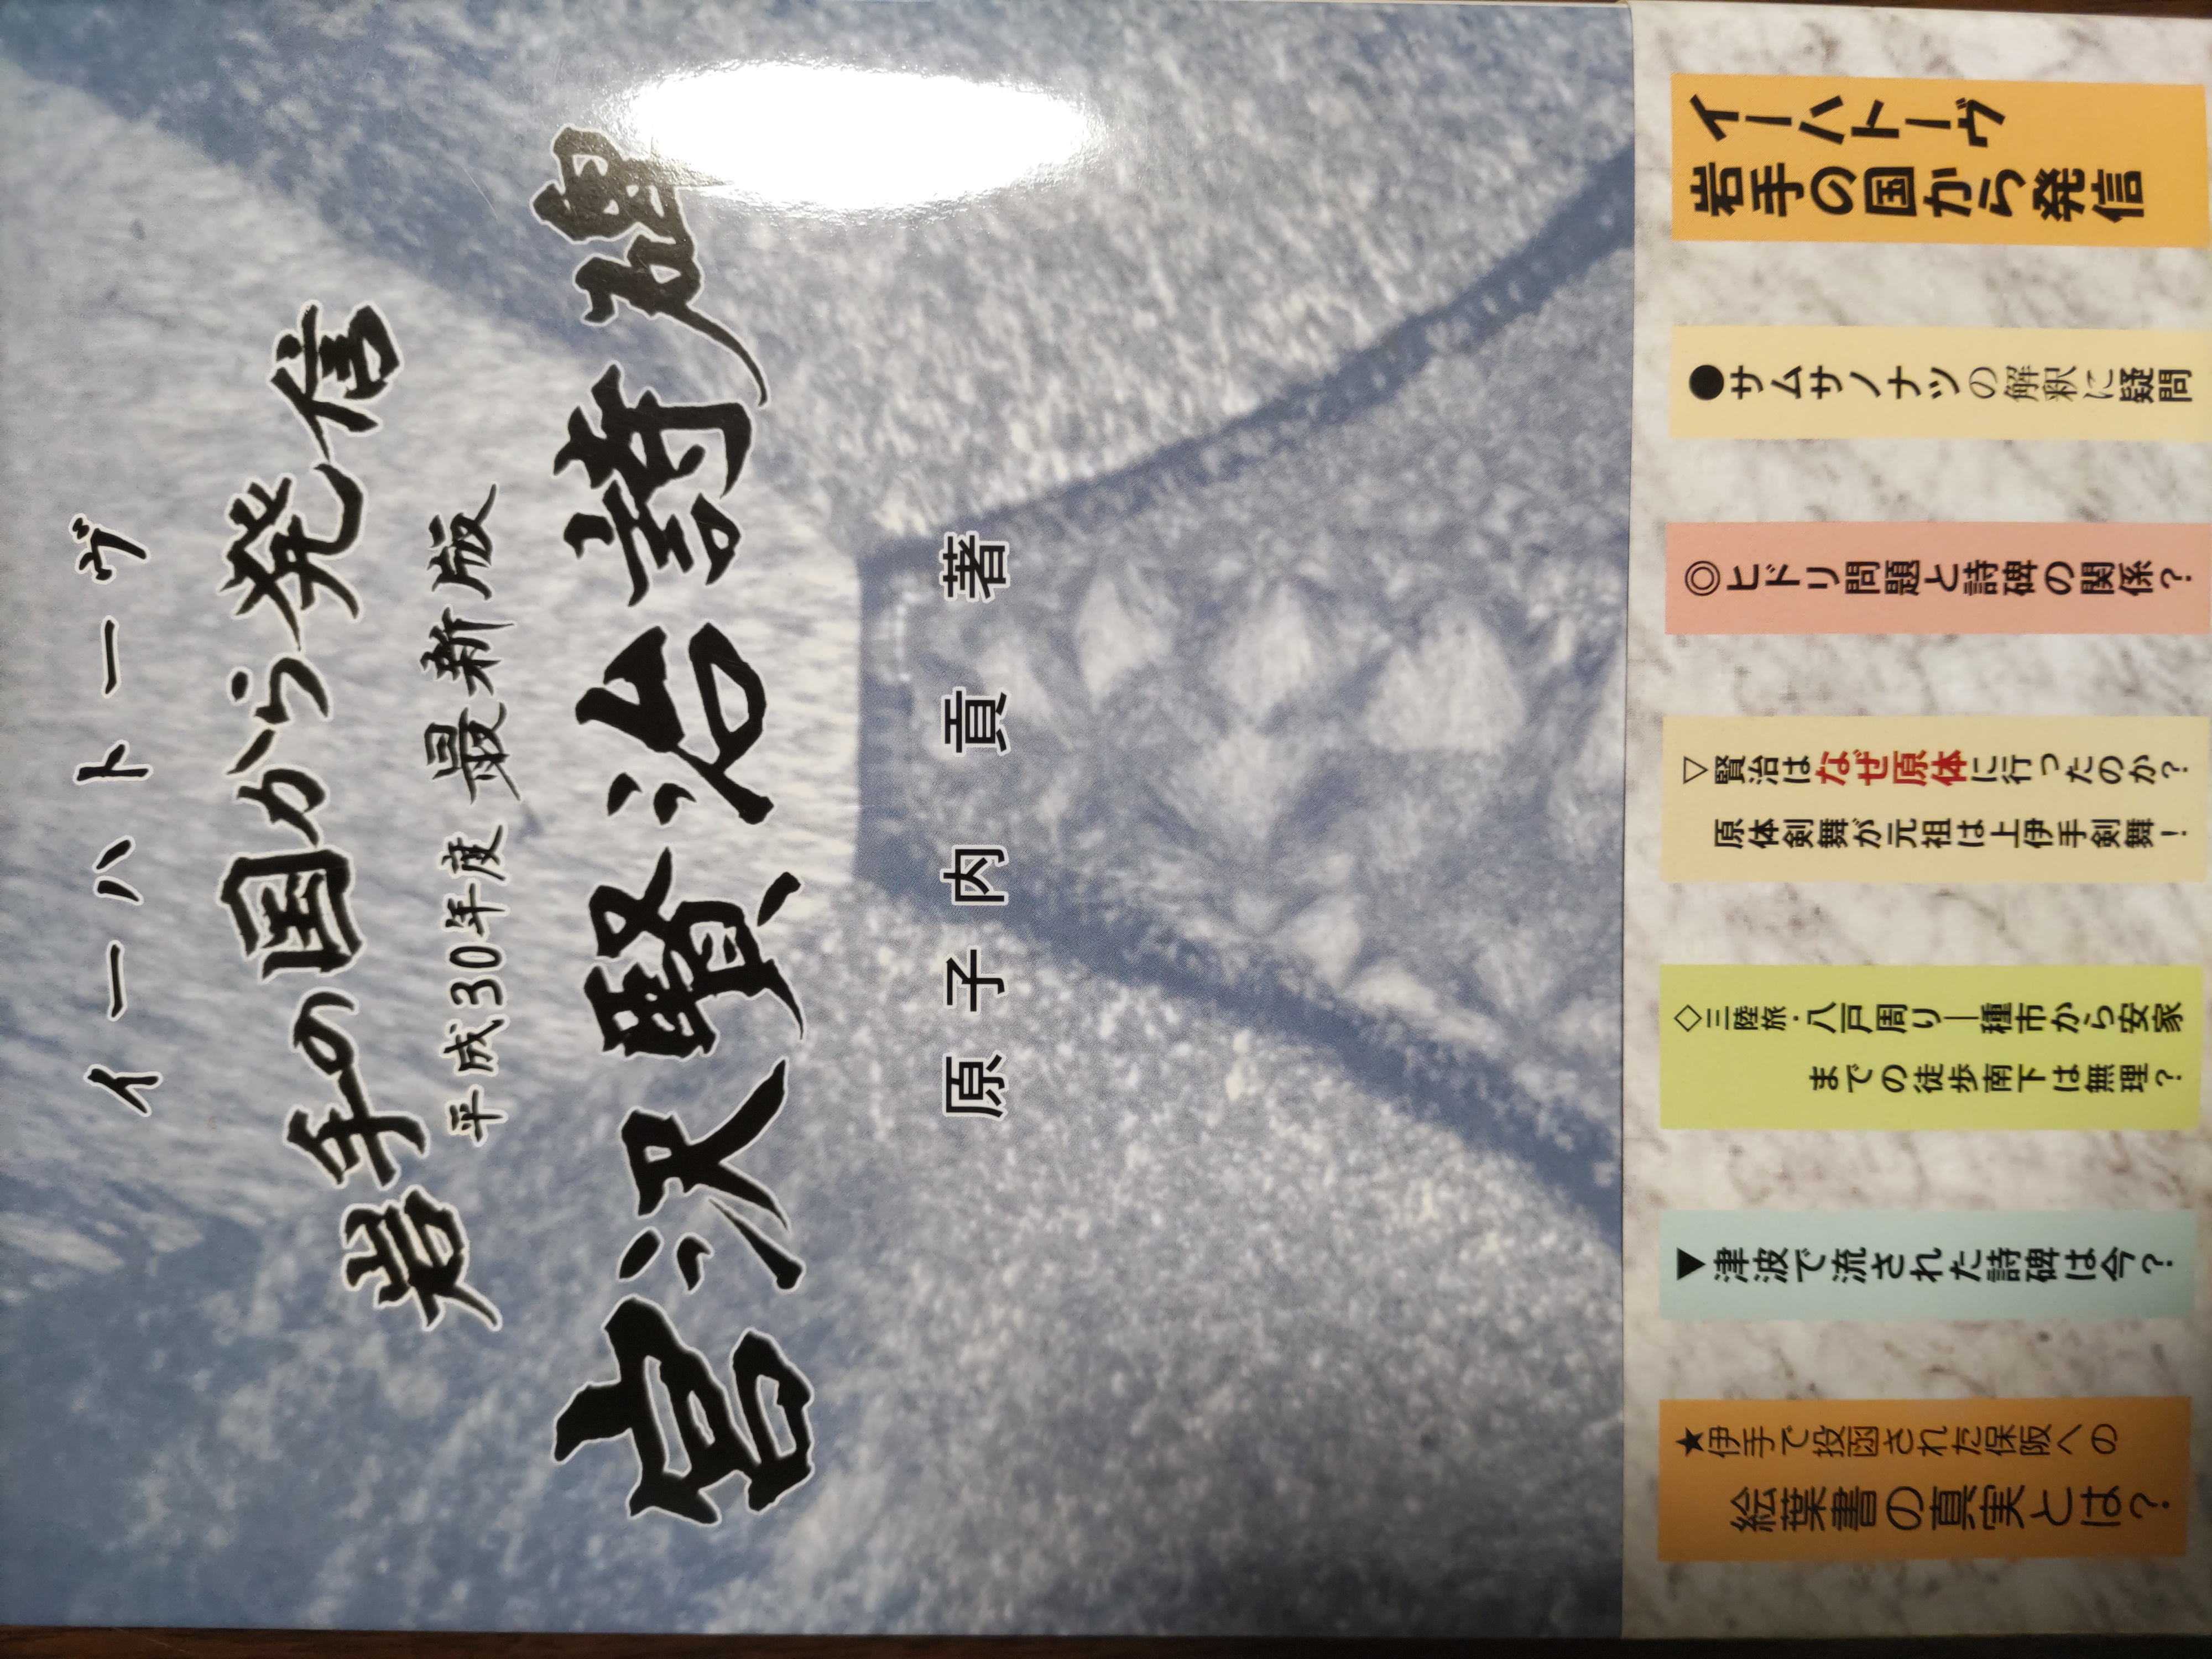 イーハトーヴ
岩手の国から発信
平成30年度 最新版
宮沢賢治詩碑
原子内 貢 著
イーハトーヴ
岩手の国から発信
●サムサノナツの解釈に疑問
◎ヒドリ問題と詩碑の関係?
▽賢治はなぜ原体に行ったのか?
原体剣舞が元祖は上伊手剣舞!
◇三陸旅・八戸周り―種市から安家
までの徒歩南下は無理?
▼津波で流された詩碑は今?
★伊手で投函された保阪への
絵葉書の真実とは?